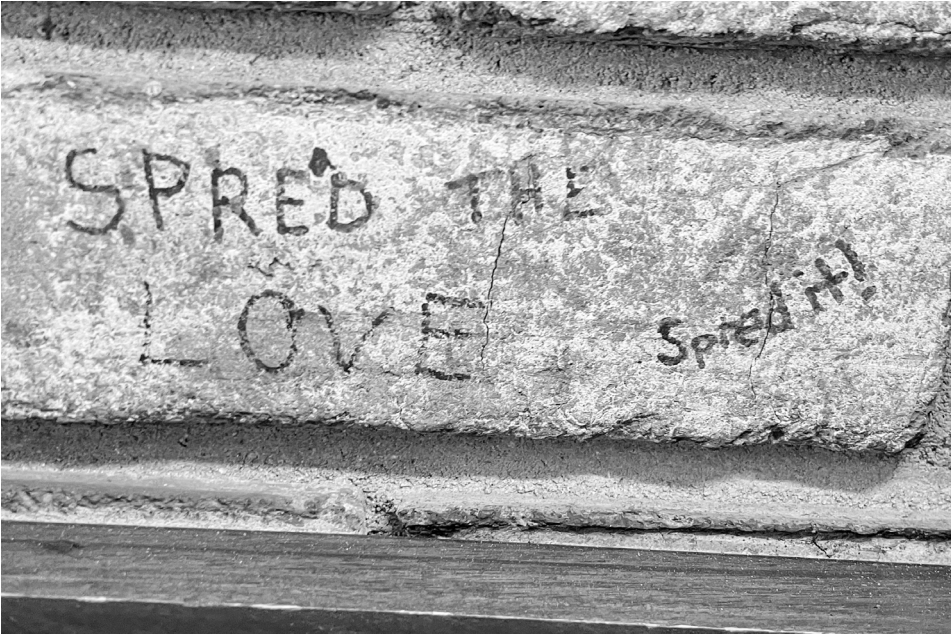 SPRED THE
LOVE
Spred it!